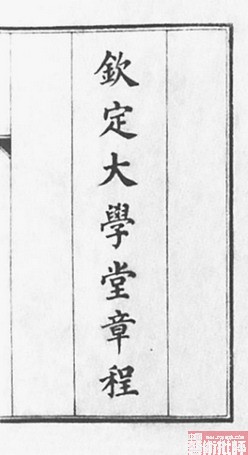 欽定大學堂章程